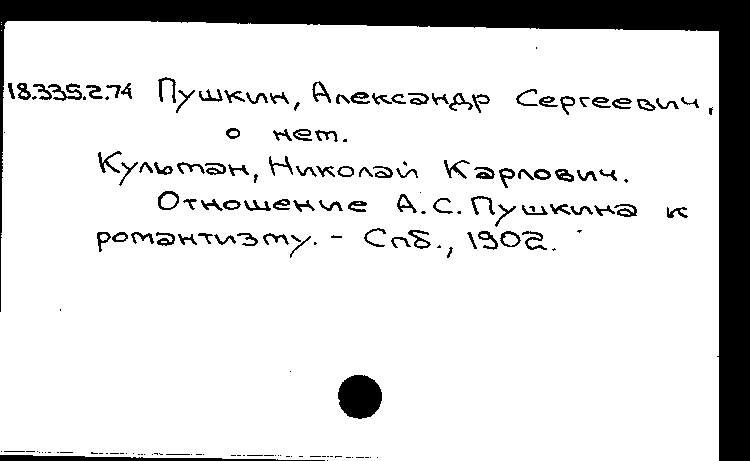 18.335.2.74 Пушкин, Александр Сергеевич,
о нем.
Культан, Николай Карлович.
Отношение А.С. Пушкина к
романтизму. - Спб., 1902.